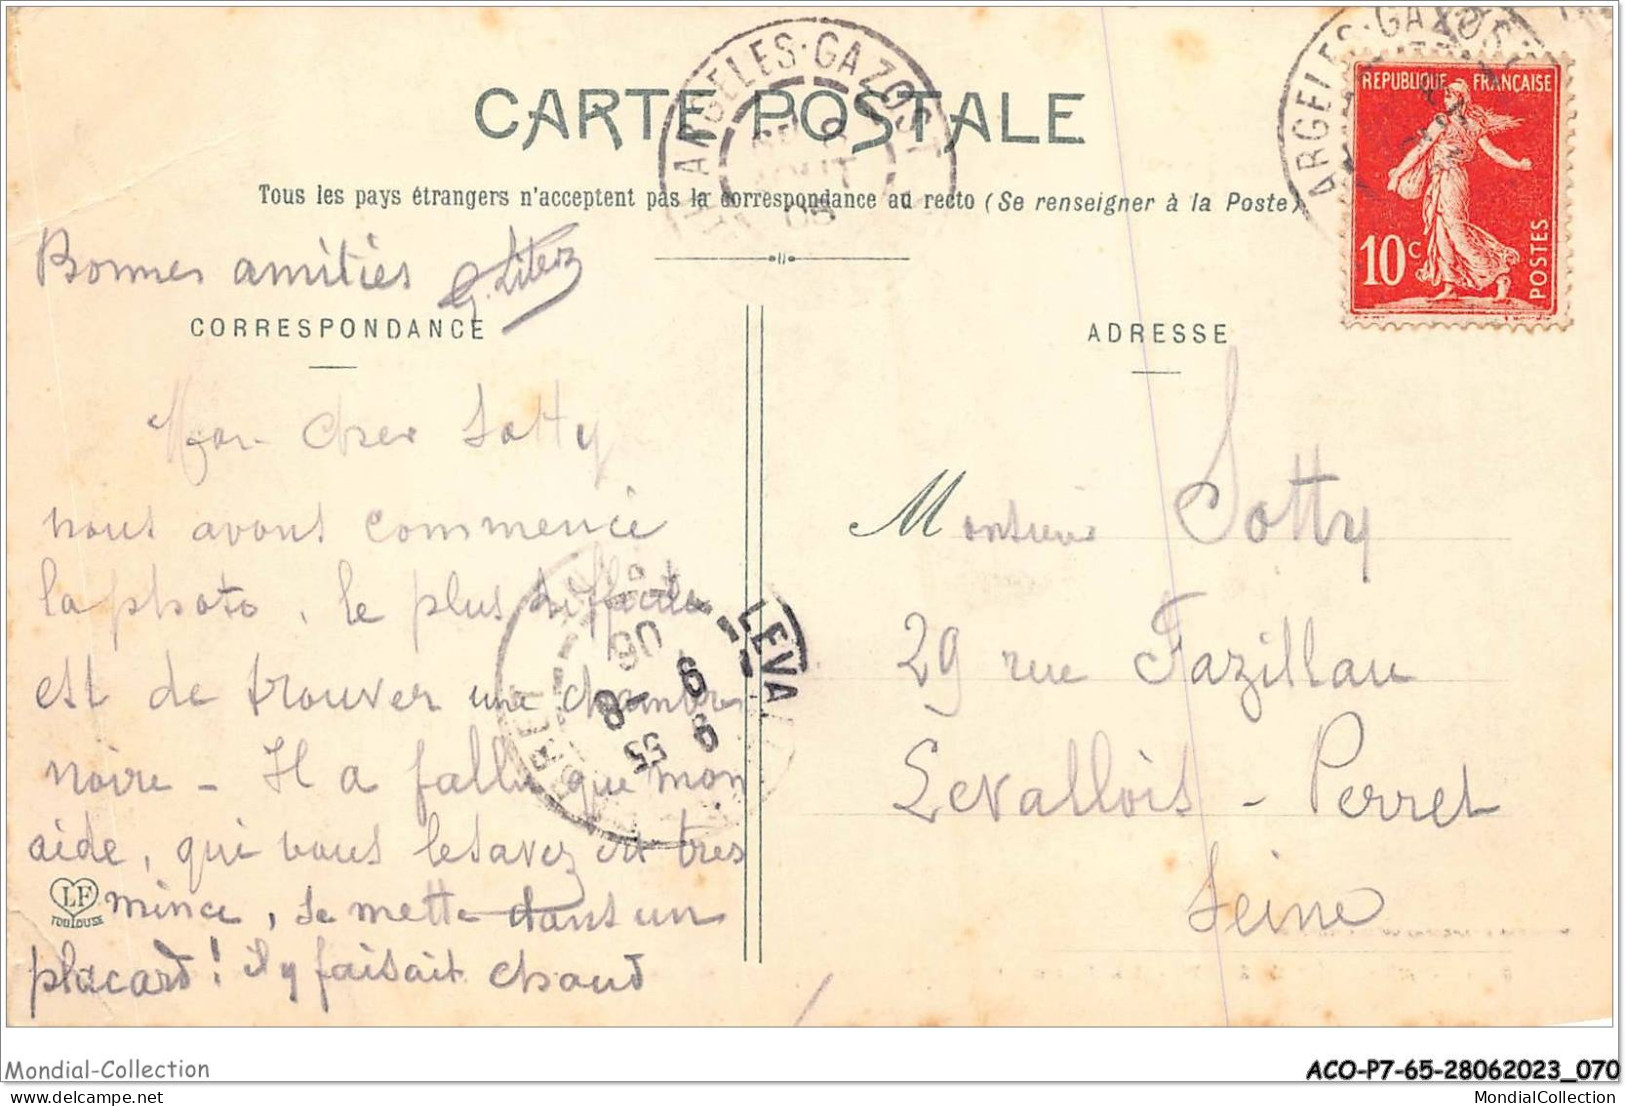 CARTE POSTALE
Tous les pays étrangers n'acceptent pas la correspondance au recto (Se renseigner à la Poste)
ARGELES-GAZOST
ARGELES-GAZOST
REPUBLIQUE FRANÇAISE
10c
POSTES
Bonnes amitiés
CORRESPONDANCE
Mon cher Sotty
nous avons commencé
la photo, le plus difficile
est de trouver une chambre
noire - Il a fallu que mon
aide, qui vous le savez est tres
mince, se mette dans un
placard! il y faisait chaud
LF
TOULOUSE
ADRESSE
Monsieur Sotty
29 rue Fazillau
Levallois-Perret
Seine
Mondial-Collection
ACO-P7-65-28062023_070
MondialCollection